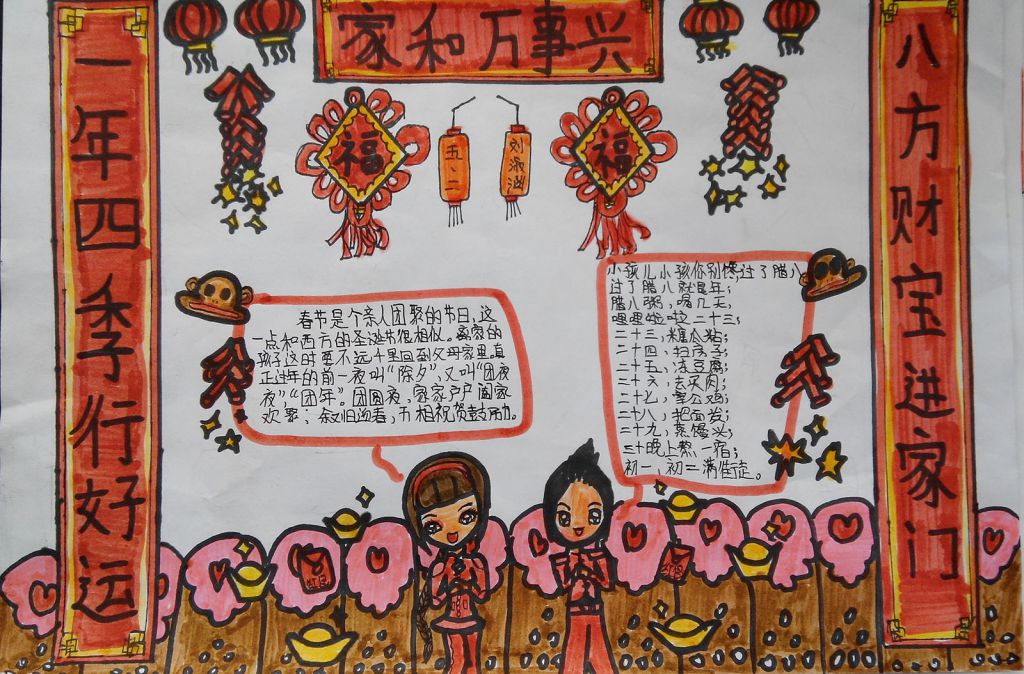 家和万事兴
一年四季行好运
八方财宝进家门
福
五、二
刘淑涵
福
春节是个亲人团聚的节日,这
一点和西方的圣诞节很相似。离家的
孩子这时要不远千里回到父母家里。真
正过年的前一夜叫“除夕”,又叫“团夜
夜”“团年”。团圆夜,家家户户阖家
欢聚;叙旧迎春,互相祝贺鼓励。
小孩儿小孩你别馋,过了腊八
过了腊八就是年;
腊八粥,喝几天,
哩哩啦啦二十三;
二十三,糖瓜粘;
二十四,扫房子;
二十五,冻豆腐;
二十六,去买肉;
二十七,宰公鸡;
二十八,把面发;
二十九,蒸馒头;
三十晚上熬一宿;
初一、初二满街走。